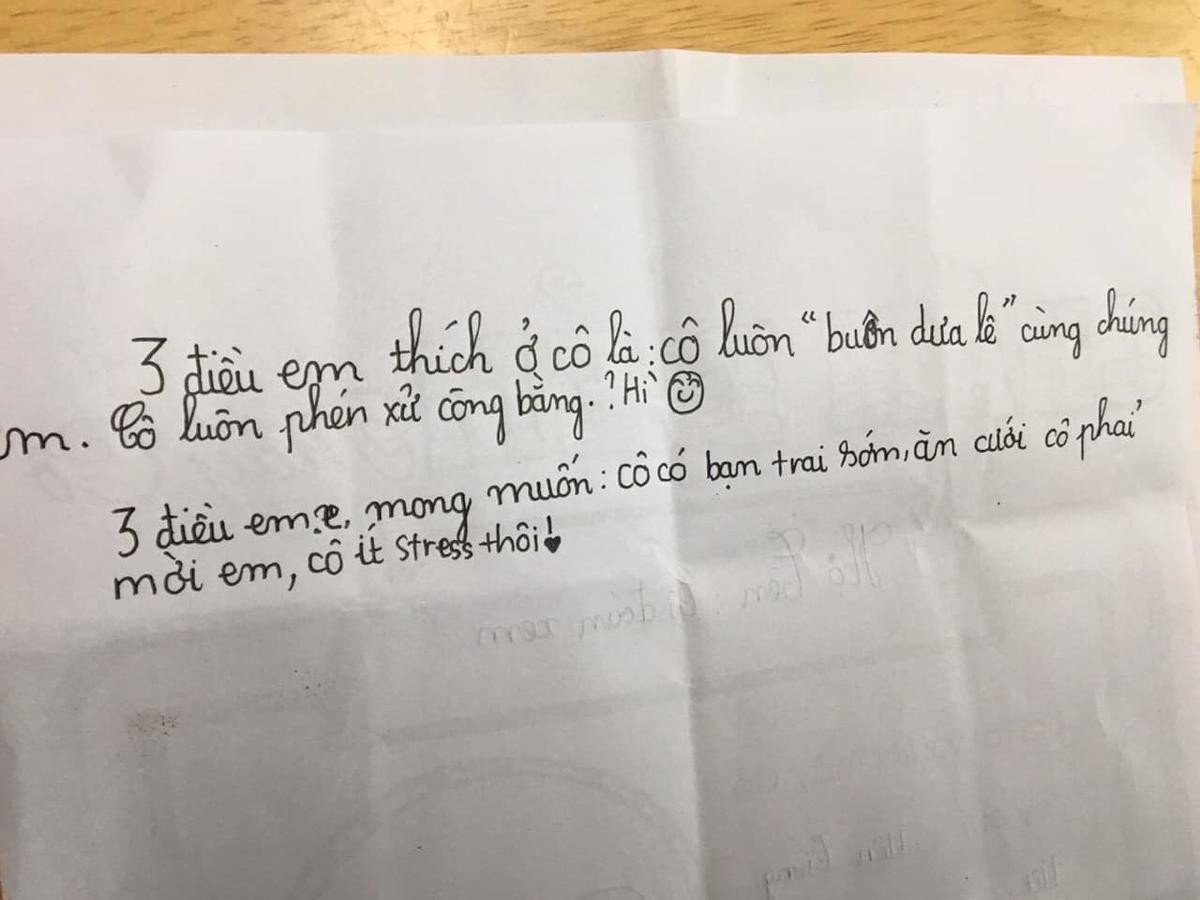 3 điều em thích ở cô là: cô luôn “buôn dưa lê” cùng chúng
m. Cô luôn phén xử công bằng.? Hì
3 điều em mong muốn: cô có bạn trai sớm, ăn cưới cô phải
mời em, cô ít stress thôi!
Họ tên: đoán xem